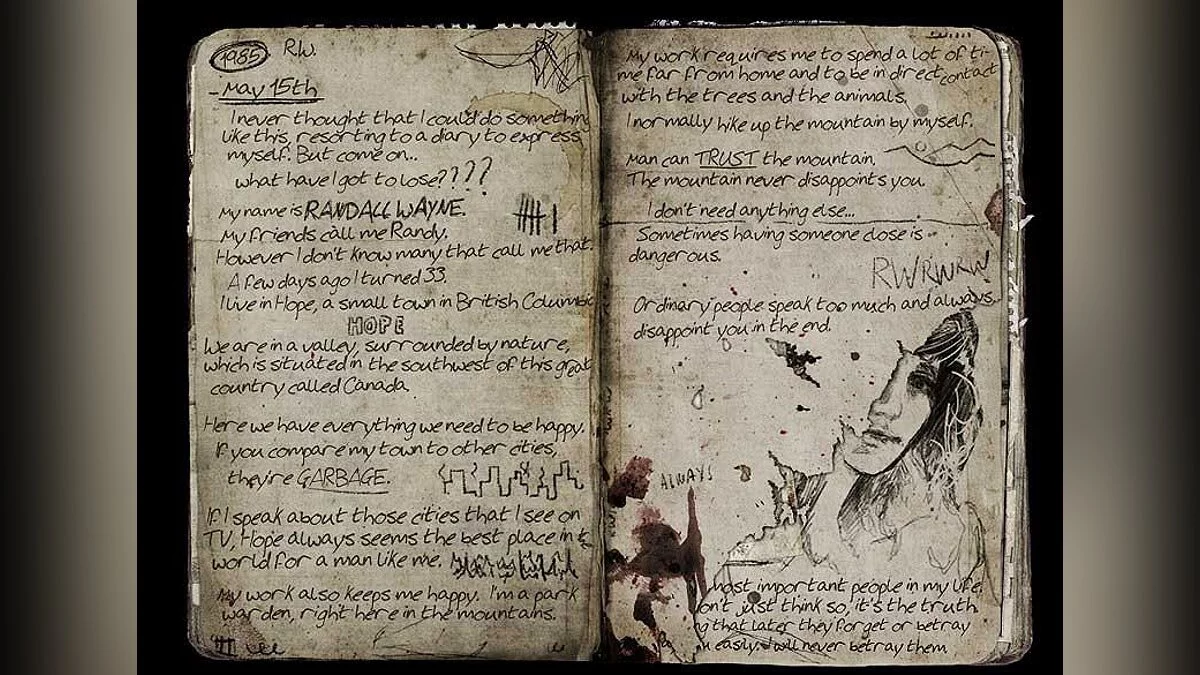 1985 R.W.
- May 15th
I never thought that I could do something
like this, resorting to a diary to express
myself. But come on...
what have I got to lose????
My name is RANDALL WAYNE.
My friends call me Randy.
However I don't know many that call me that.
A few days ago I turned 33.
I live in Hope, a small town in British Columbia
HOPE
We are in a valley, surrounded by nature,
which is situated in the southwest of this great
country called Canada
Here we have everything we need to be happy.
If you compare my town to other cities,
they're GARBAGE.
If I speak about those cities that I see on
TV, Hope always seems the best place in
world for a man like me.
My work also keeps me happy. I'm a park
warden, right here in the mountains.
My work requires me to spend a lot of ti-
me far from home and to be in direct contact
with the trees and the animals.
I normally hike up the mountain by myself.
Man can TRUST the mountain.
The mountain never disappoints you.
I don't need anything else...
Sometimes having someone close is
dangerous.
RWRWRW
Ordinary people speak too much and always
disappoint you in the end.
ALWAYS
most important people in my life.
on't just think so, it's the truth
g that later they forget or betray
easily. I will never betray them